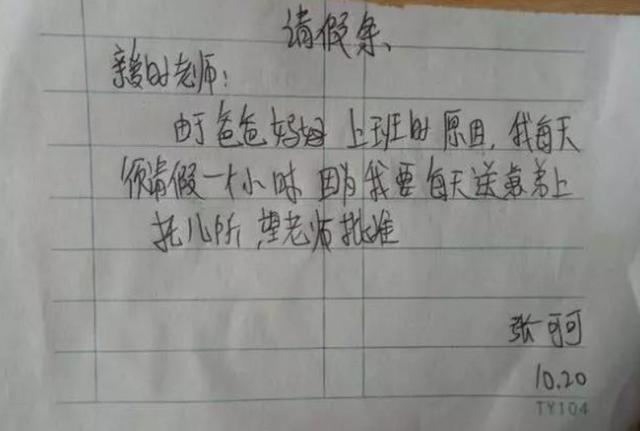 请假条、
亲爱的老师：
由于爸爸妈妈上班的原因，我每天
须请假一个小时因为我要每天送弟弟上
托儿所，望老师批准
张可可
10.20
TY104